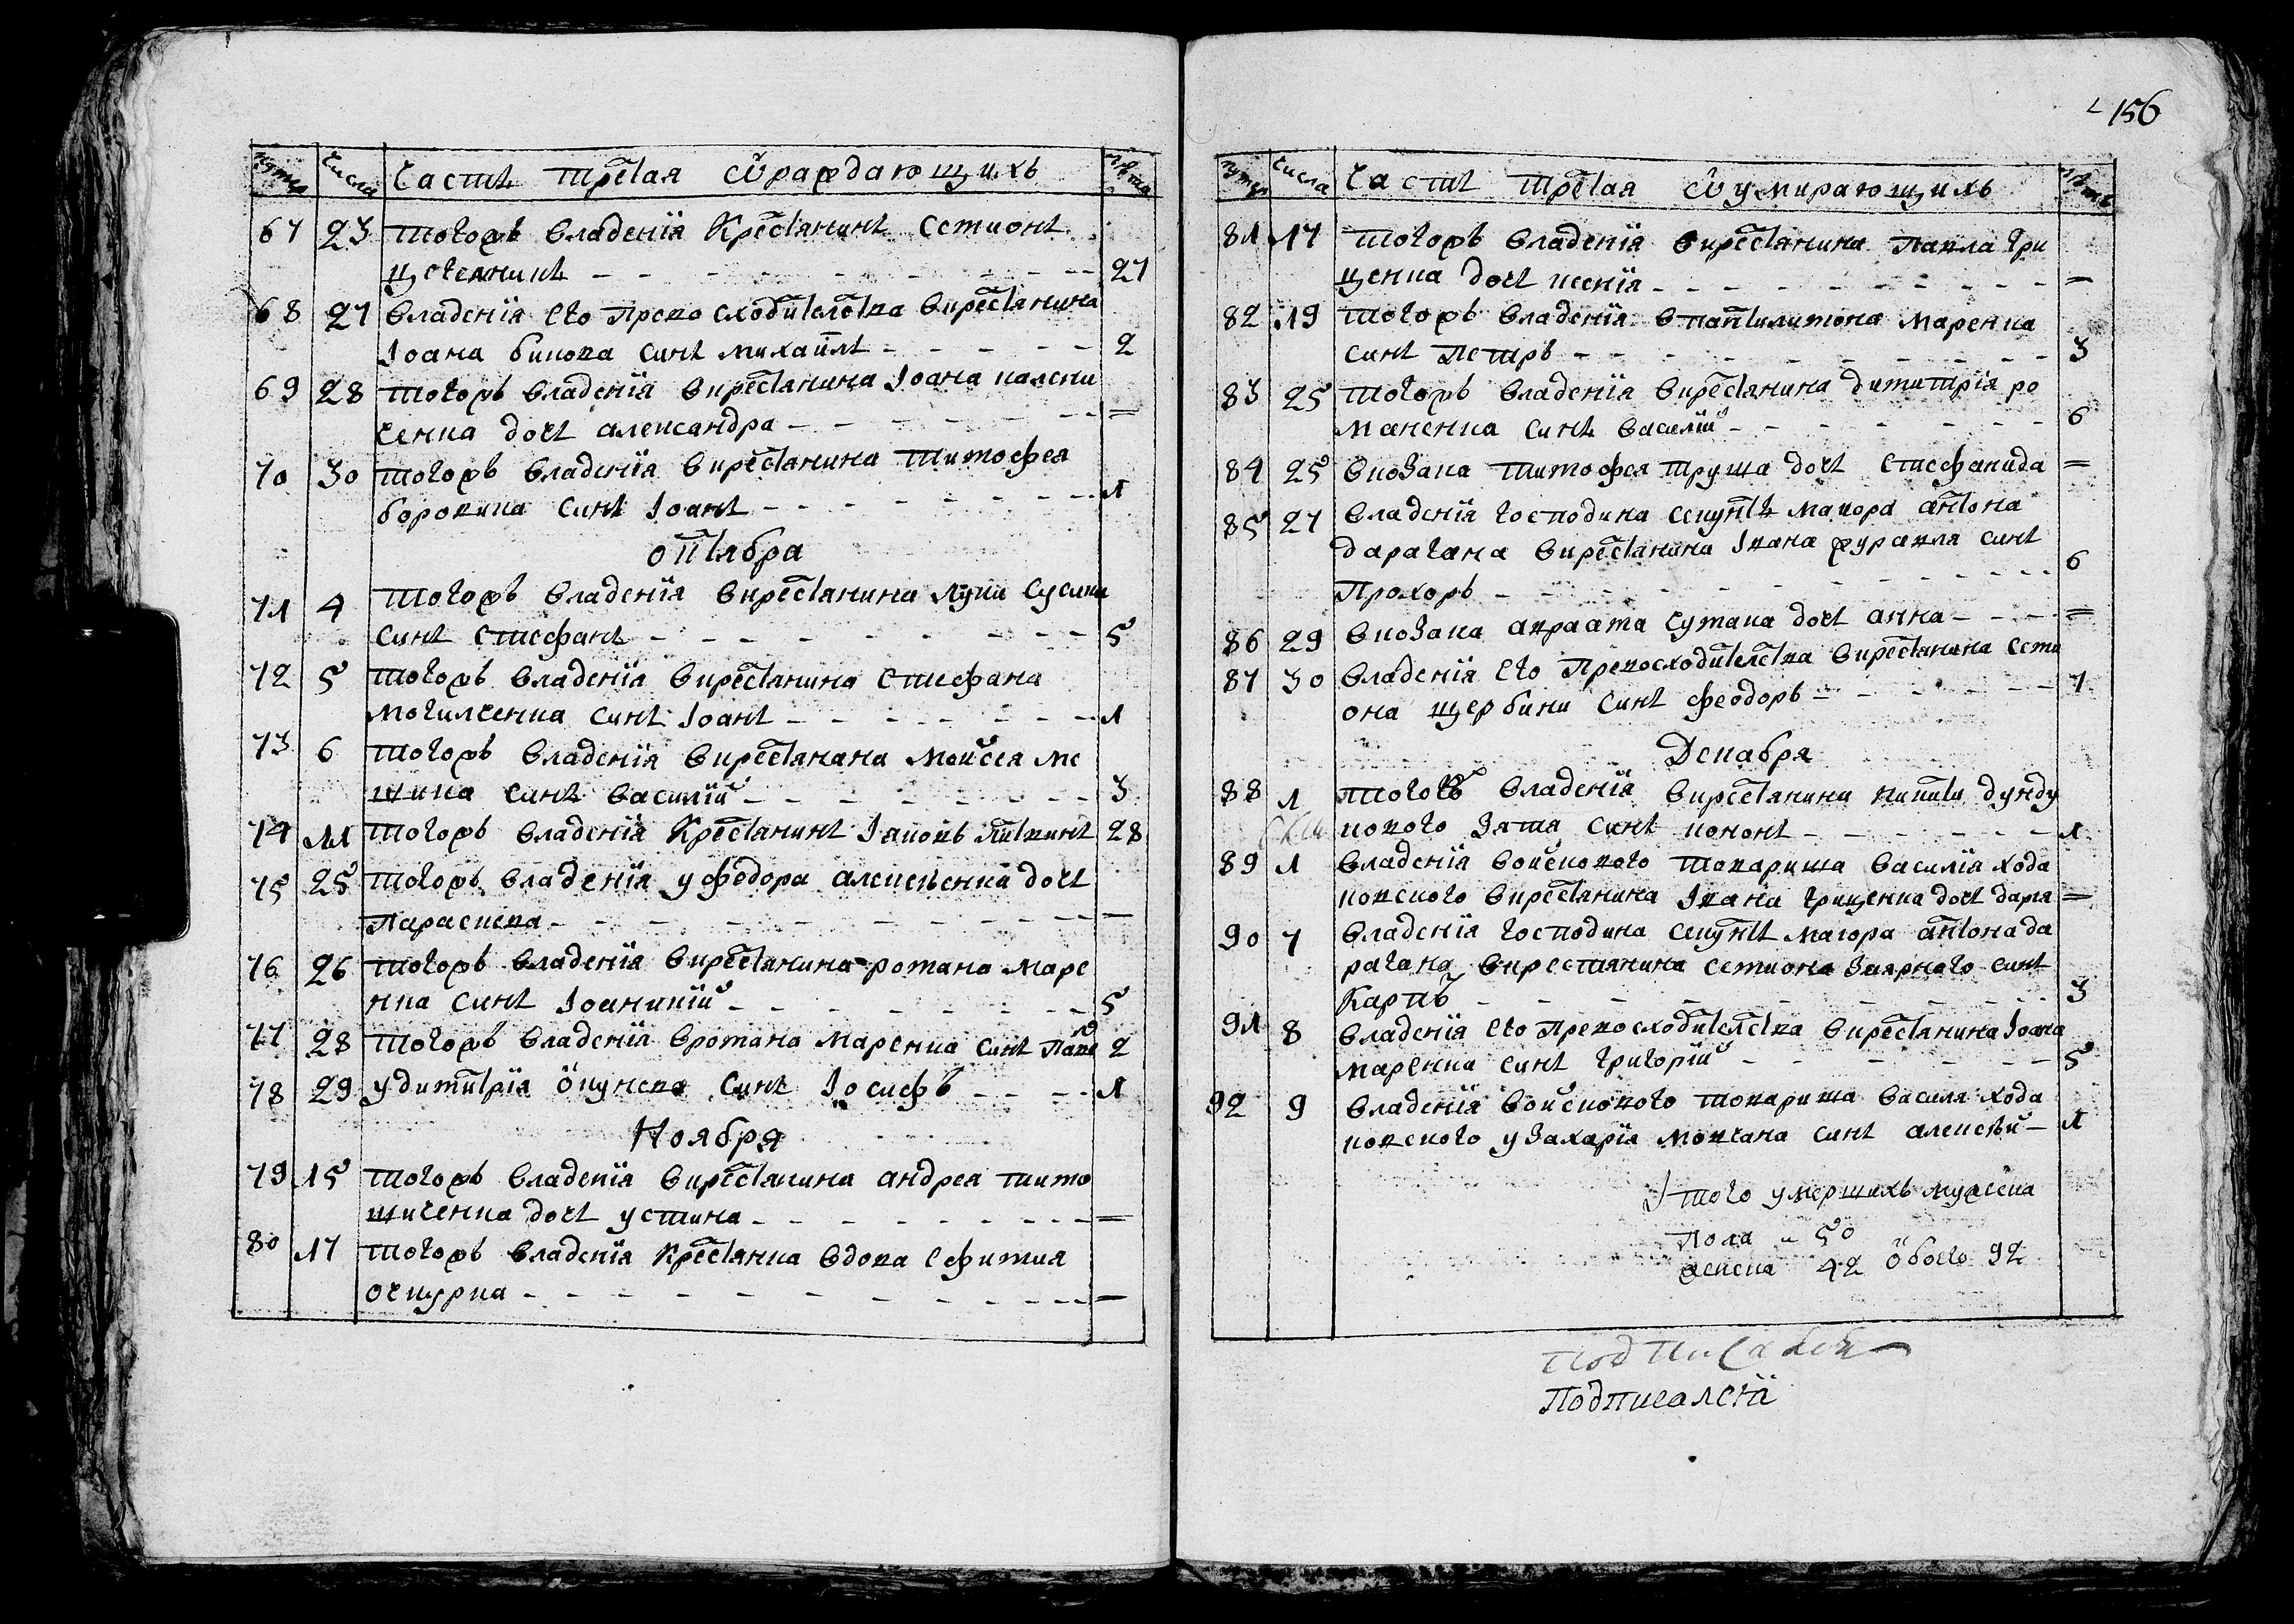 156
нумер числа Часть третая о раждающихъ лѣта
67 23 тогожъ владенїя крестянинъ Семионъ
27
68 27 владенїя его превосходителства в крестянина
Іоана бикова синъ михаилъ 2
69 28 тогожъ владенїя в крестянина Іоана
ченка дочь александра =
70 30 тогожъ владенїя в крестянина тимофея
боровика синъ Іоанъ 1
октября
71 4 тогожъ владенїя в крестянина луки
синъ стефанъ 5
72 5 тогожъ владенїя в крестянина стефана
могилченка синъ Іоанъ 1
73 6 тогожъ владенїя в крестянана мойсея ме
синъ василїй 3
74 11 тогожъ владенїя крестянинъ Іаковъ 28
75 25 тогожъ владенїя у федора алексѣенка дочь
Параскева —
76 26 тогожъ владенїя в крестянина романа маре
нка синъ Іоаникїй 5
77 28 тогожъ владенїя в романа маренка синъ 2
78 29 у димитрїя синъ Іосифъ 1
Ноября
79 15 тогожъ владенїя в крестянина андрея тимо
шиченка дочь устина =
80 17 тогожъ владенїя крестянка вдова ефимия
очкурка —
нумер числа Часть третая о умирающихъ лѣта
81 17 тогожъ владенїя в крестянина павла гри
ценка дочь ксенїя =
82 19 тогожъ владенїя в пантилимона маренка
синъ Петръ 3
83 25 тогожъ владенїя в крестянина димитрїя ро
маненка синъ василїй 6
84 25 в козака тимофея труша дочь стефанида =
85 27 владенїя господина секунтъ маиора антона
дарагана в крестянина Івана журавля синъ
Прохоръ 6
86 29 в козака дочь анна =
87 30 владенїя его Превосходителства в крестянина семи
она щербини синъ феодоръ 7
Декабря
88 1 тогожъ владенїя в крестянини никити дунду
кового зятя синъ кононъ 1
89 1 владенїя войскового товариша василїя хода
ковского в крестянина Івана гриценка дочь дарїя =
90 7 владенїя господина секунтъ маиора антона да
рагана в крестянина семиона заярного синъ
Карпъ 3
91 8 владенїя его превосходителства в крестянина Іоана
маренка синъ григорїй 5
92 9 владенїя войскового товариша василя хода
ковского у захарїя мовчана синъ алексѣй 1
Ітого умершихъ мужеска
пола 50
женска 42 обоего 92
подписалъ
Подписалъ